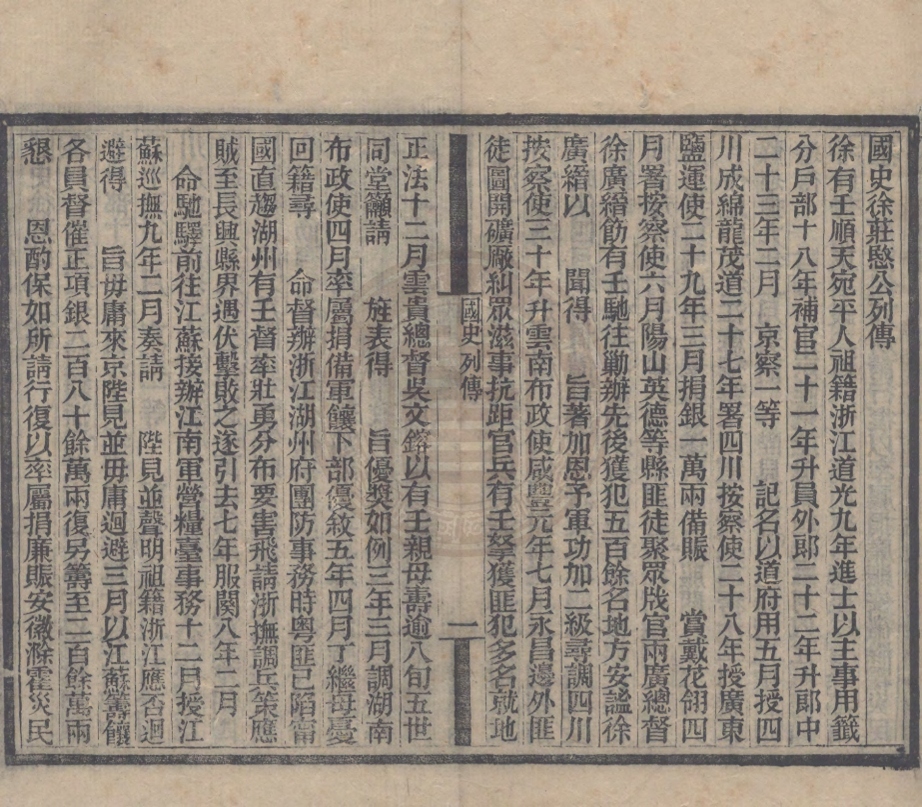 國史徐莊愍公列傳
徐有壬順天宛平人祖籍浙江道光九年進士以主事用籤
分戶部十八年補官二十一年升員外郎二十二年升郎中
二十三年二月　京察一等　記名以道府用五月授四
川成綿龍茂道二十七年署四川按察使二十八年授廣東
鹽運使二十九年三月捐銀一萬兩備賑　賞戴花翎四
月署按察使六月陽山英德等縣匪徒聚眾戕官兩廣總督
徐廣縉飭有壬馳往勦辦先後獲犯五百餘名地方安謐徐
廣縉以　聞得　旨著加恩予軍功加二級尋調四川
按察使三十年升雲南布政使咸豐元年七月永昌邊外匪
徒圖開礦厰糾眾滋事抗距官兵有壬拏獲匪犯多名就地
國史　列傳　一
正法十二月雲貴總督吳文鎔以有壬親母壽逾八旬五世
同堂籲請　旌表得　旨優獎如例三年三月調湖南
布政使四月率屬捐備軍饟下部優敘五年四月丁繼母憂
回籍尋　命督辦浙江湖州府團防事務時粵匪已陷甯
國直趨湖州有壬督率壯勇分布要害飛請浙撫調兵策應
賊至長興縣界遇伏擊敗之遂引去七年服闋八年二月
命馳驛前往江蘇接辦江南軍營糧臺事務十二月授江
蘇巡撫九年二月奏請　陛見並聲明祖籍浙江應否迴
避得　旨毋庸來京陛見並毋庸迴避三月以江蘇籌饟
各員督催正項銀二百八十餘萬兩復另籌至二百餘萬兩
懇　恩酌保如所請行復以率屬捐廉賑安徽滁霍災民